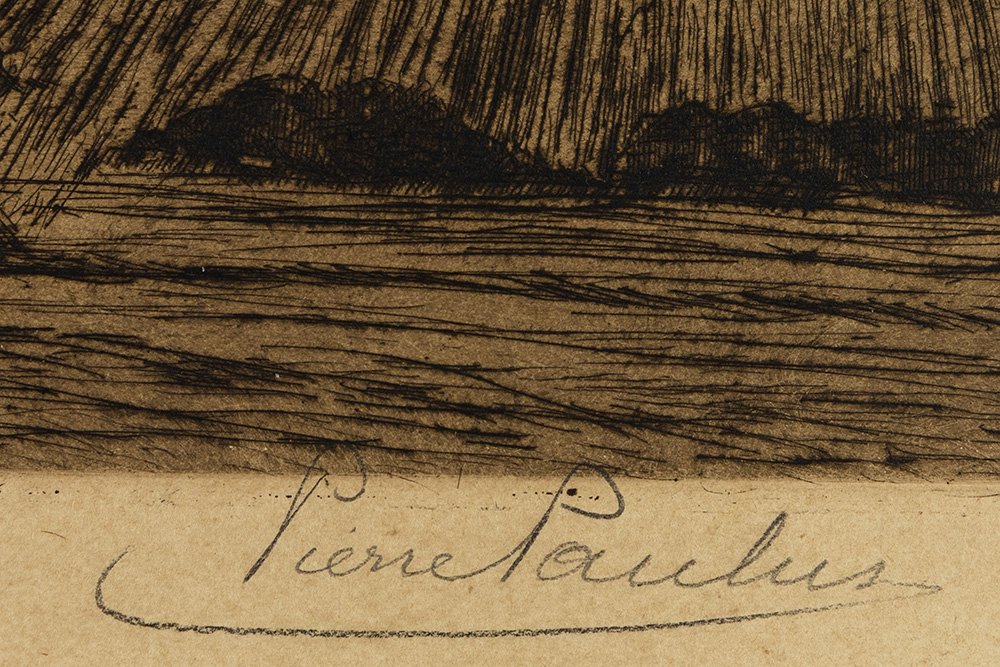 Pierre Paulus